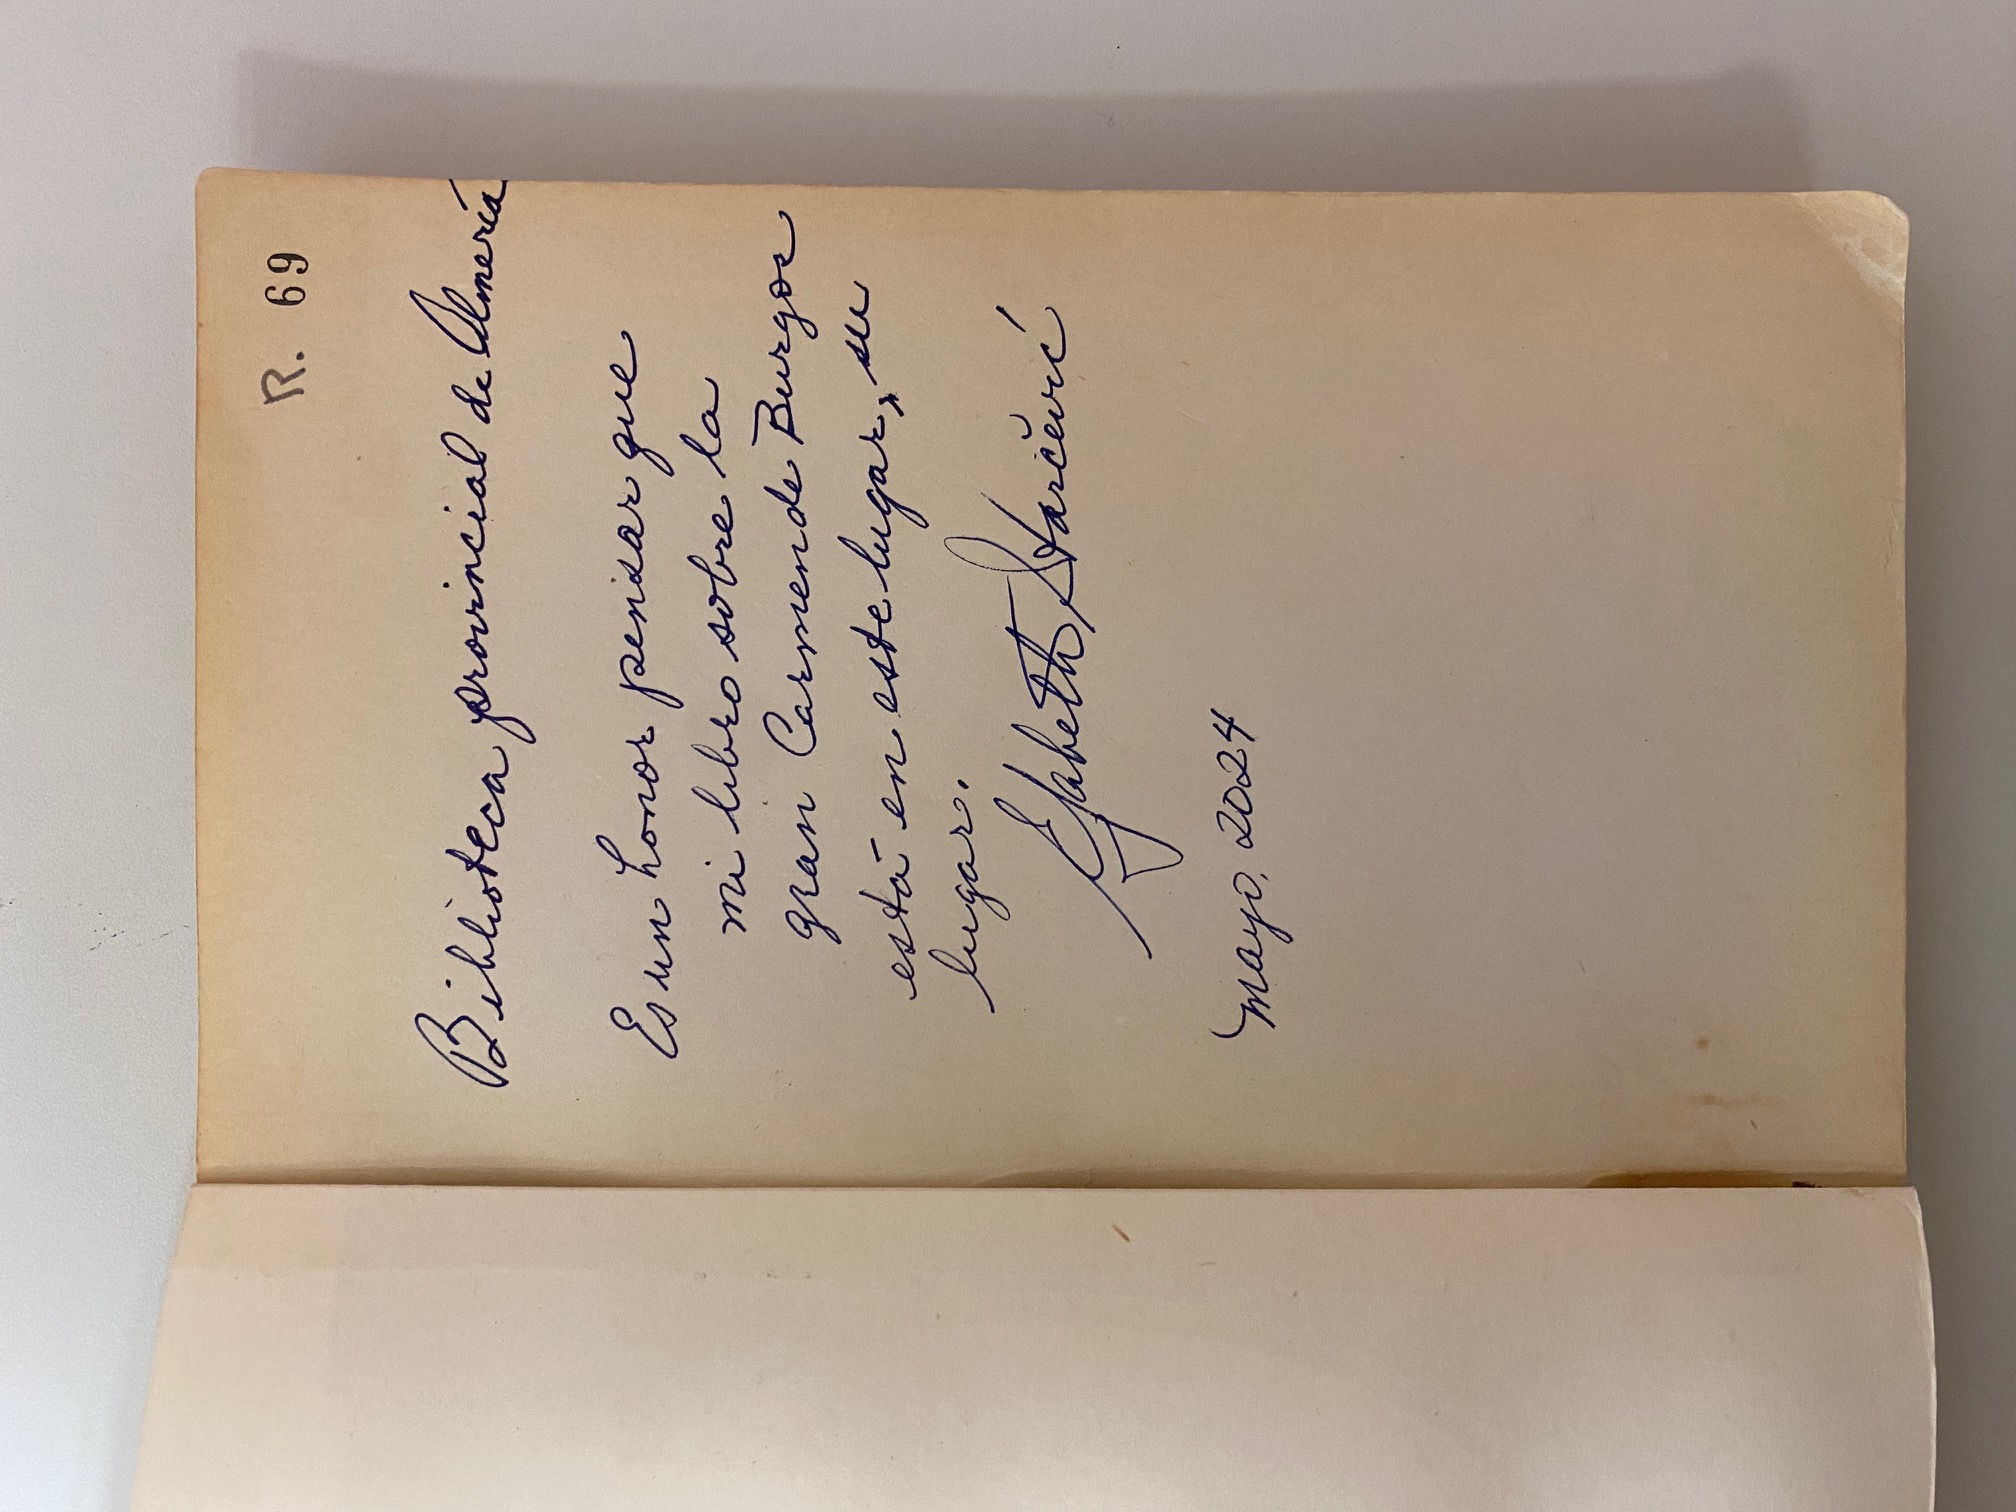 R. 69
Biblioteca provincial de Almería
Es un honor pensar que
mi libro sobre la
gran Carmen de Burgos
está en este lugar, su
lugar.
Elizabeth Starčević
Mayo, 2024